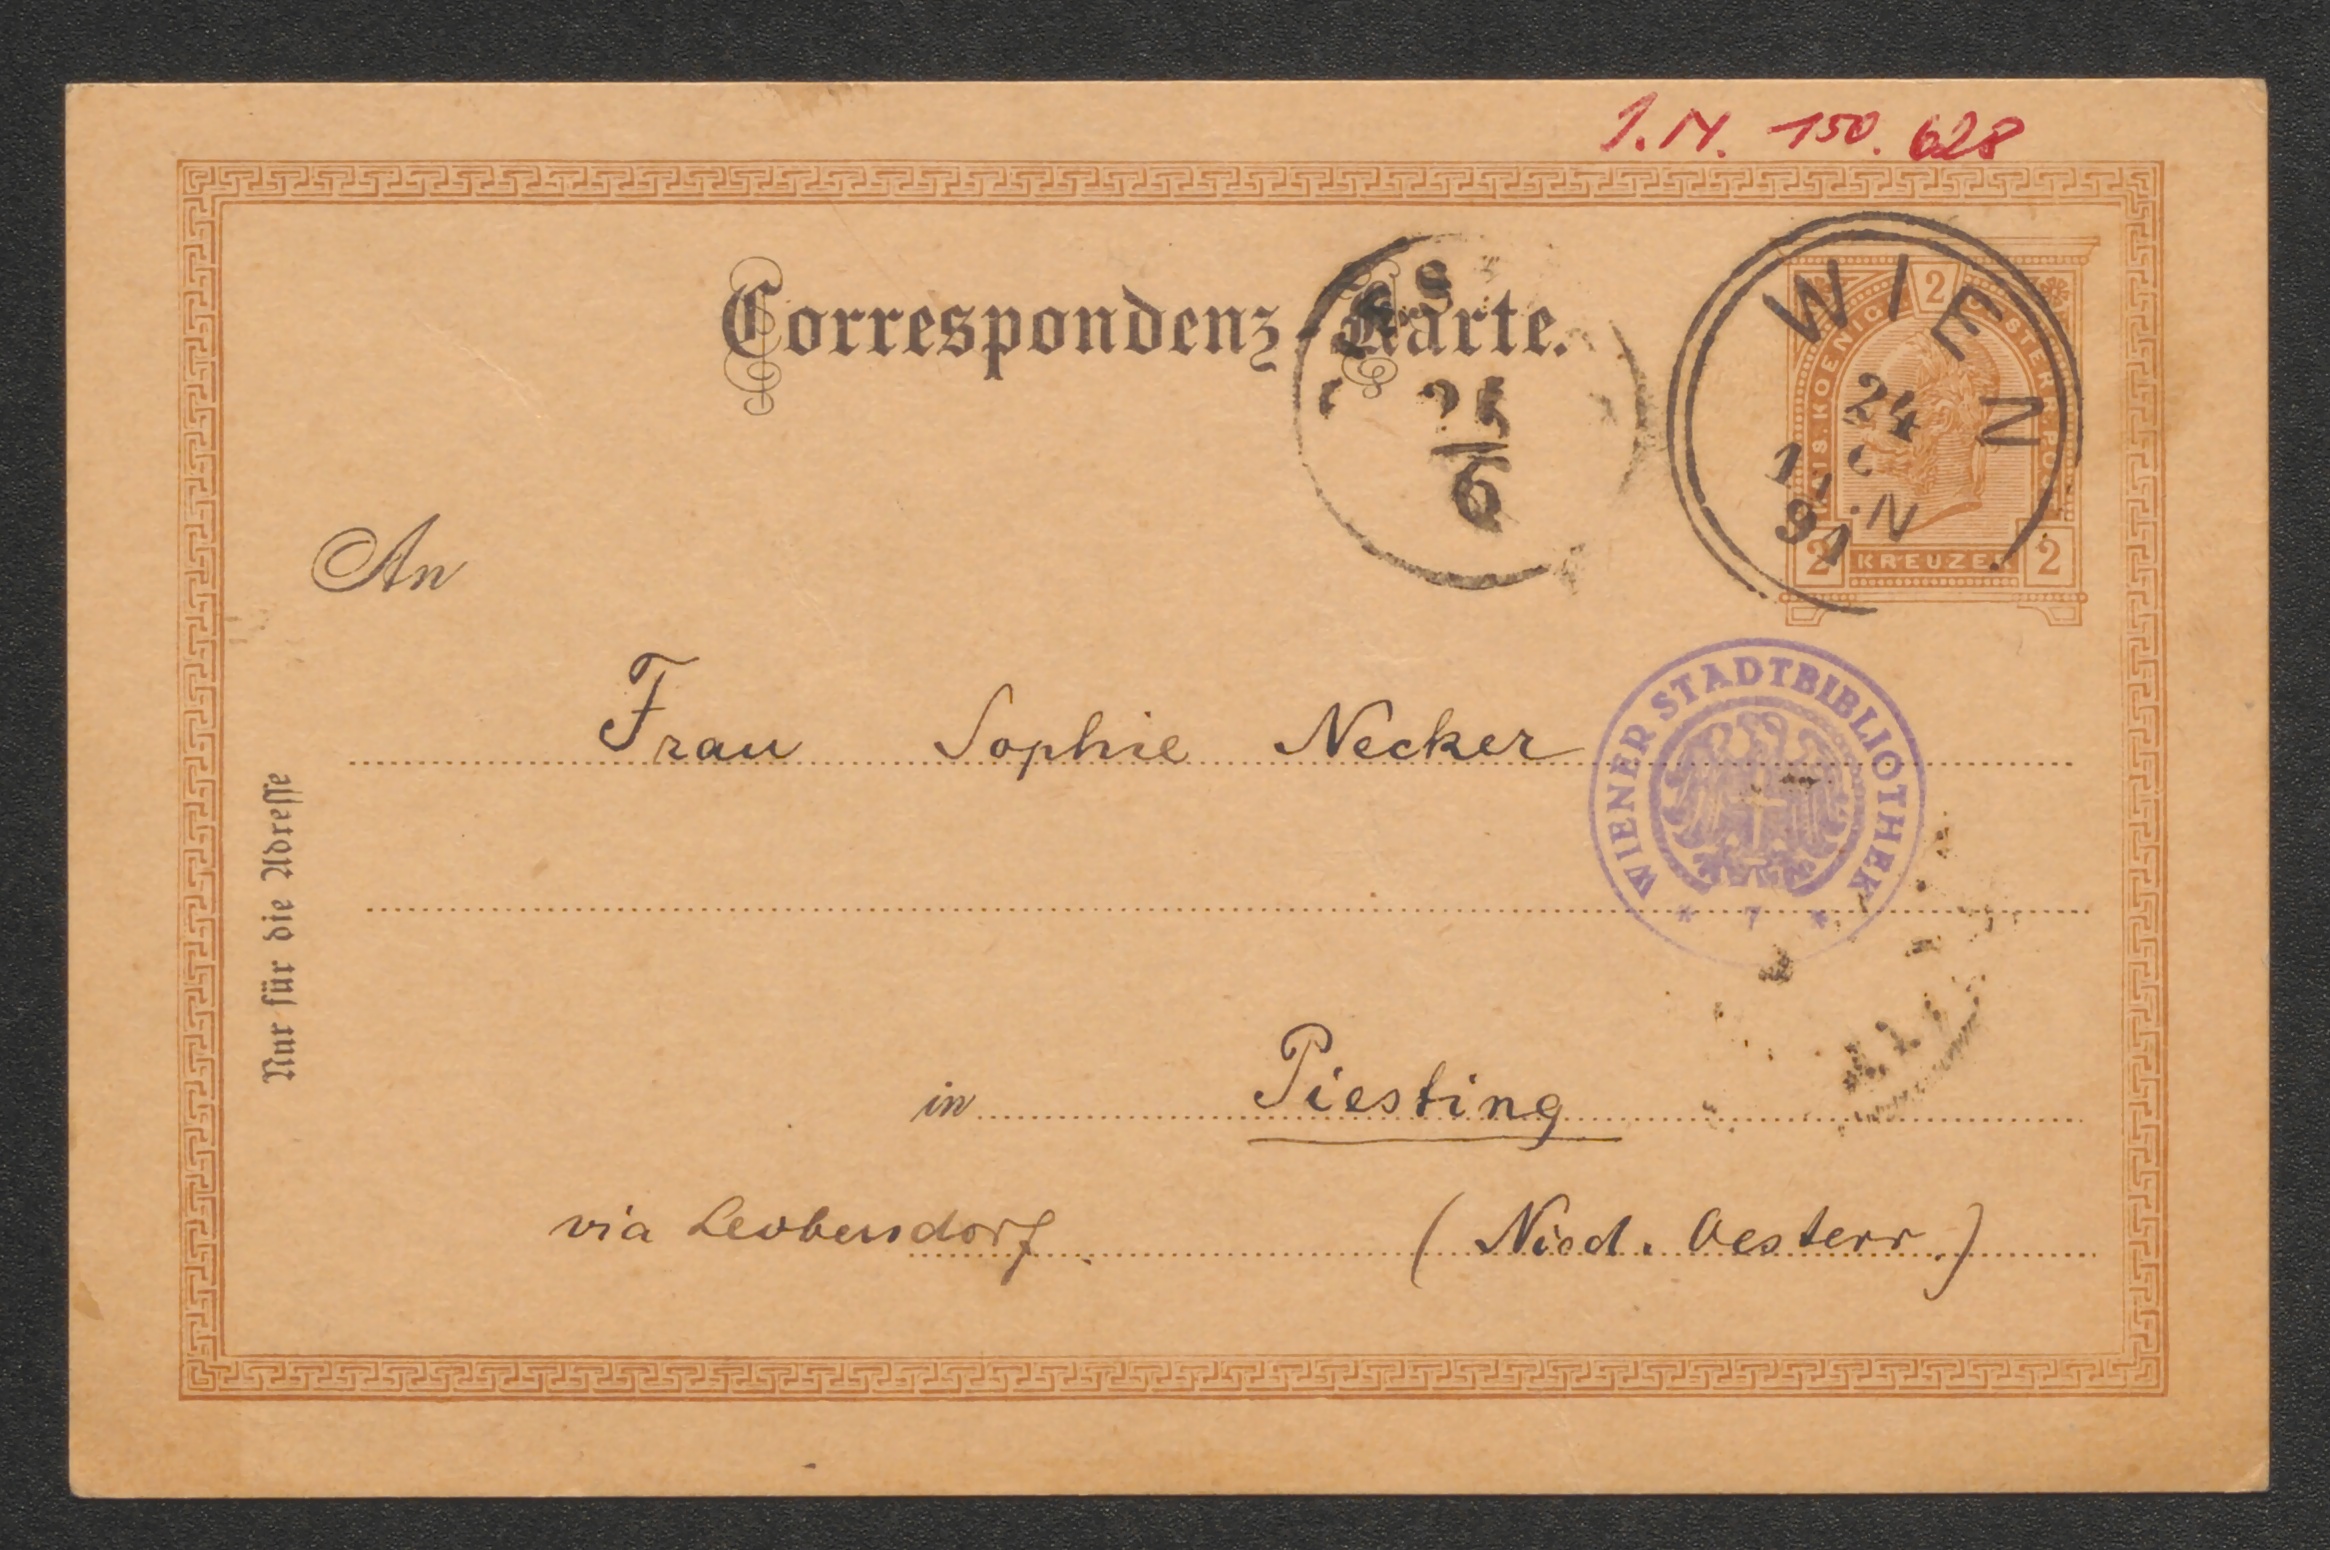 I.N. 150.628
Correspondenz-Karte.
25
6
WIEN
24
91
N
KAIS. KOENIGL. OESTERR. POST
2
2 KREUZER 2
An
Frau Sophie Necker
WIENER STADTBIBLIOTHEK
* 7 *
Nur für die Adresse
in Piesting
via Leobersdorf (Nied. Oesterr.)